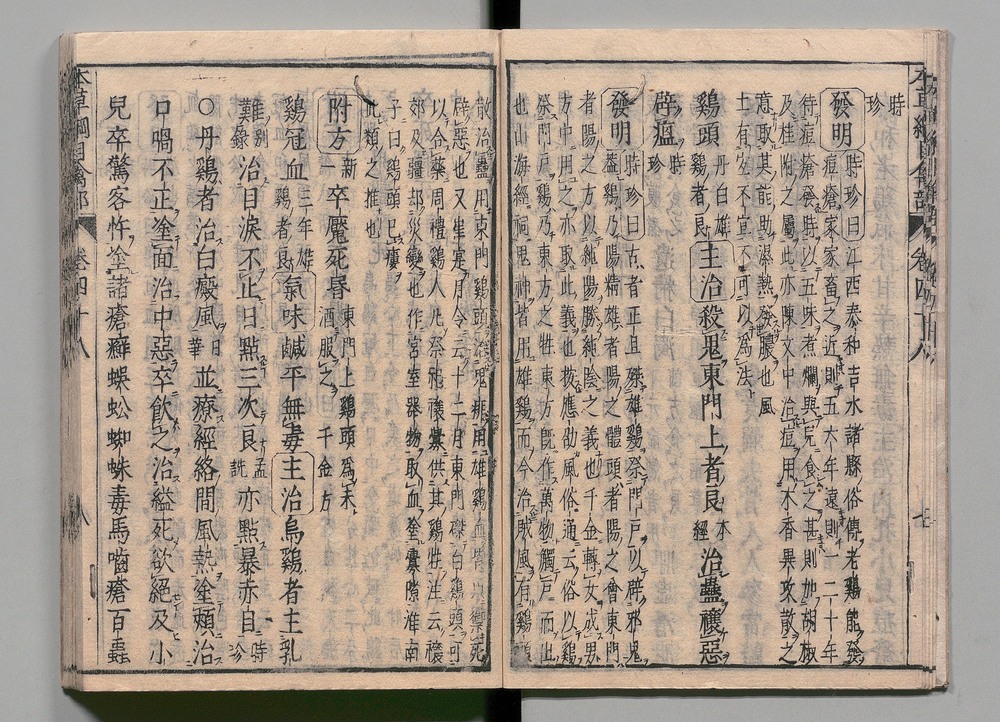 時珍
發明時珍曰江西泰和吉水諸縣俗傳老鷄能發
痘瘡家家畜之近則五六年遠則一二十年
待痘瘡發時以五味煮爛與兒食之甚則加胡椒
及桂附之屬此亦陳文中治痘用木香異攻散之
意取其能助濕熱發膿也風
土有宜不宜不可以為法
鷄頭丹白雄鷄者良主治殺鬼東門上者良本經治蠱禳惡
辟瘟時珍
發明時珍曰古者正旦磔雄鷄祭門戶以辟邪鬼
蓋鷄乃陽精雄者陽之體頭者陽之會東門
者陽之方以純陽勝純陰之義也千金轉女成男
方中用之亦取此義也按應劭風俗通云俗以鷄
祭門戶鷄乃東方之牲東方既作萬物觸戶而出
也山海經祠鬼神皆用雄鷄而今治賊風有鷄頭
散治蠱用東門鷄頭治鬼痱用雄鷄血皆以禦死
辟惡也又崔寔月令云十二月東門磔白鷄頭可
以合藥周禮鷄人凡祭祀禳釁供其鷄牲注云禳
郊及疆却災變也作宮室器物取血塗釁隙淮南
子曰鷄頭已瘻
此類之推也
附方新一卒魘死昏東門上鷄頭為末酒服之千金方
鷄冠血三年雄鷄者良氣味鹹平無毒主治烏鷄者主乳
難別錄治目淚不止日點三次良孟詵亦點暴赤目時珍
○丹鷄者治白癜風日華並療經絡間風熱塗頰治
口喎不正塗面治中惡卒飲之治縊死欲絕及小
兒卒驚客忤塗諸瘡癬蜈蚣蜘蛛毒馬嚙瘡百蟲
本草綱目禽部 卷四十八 八